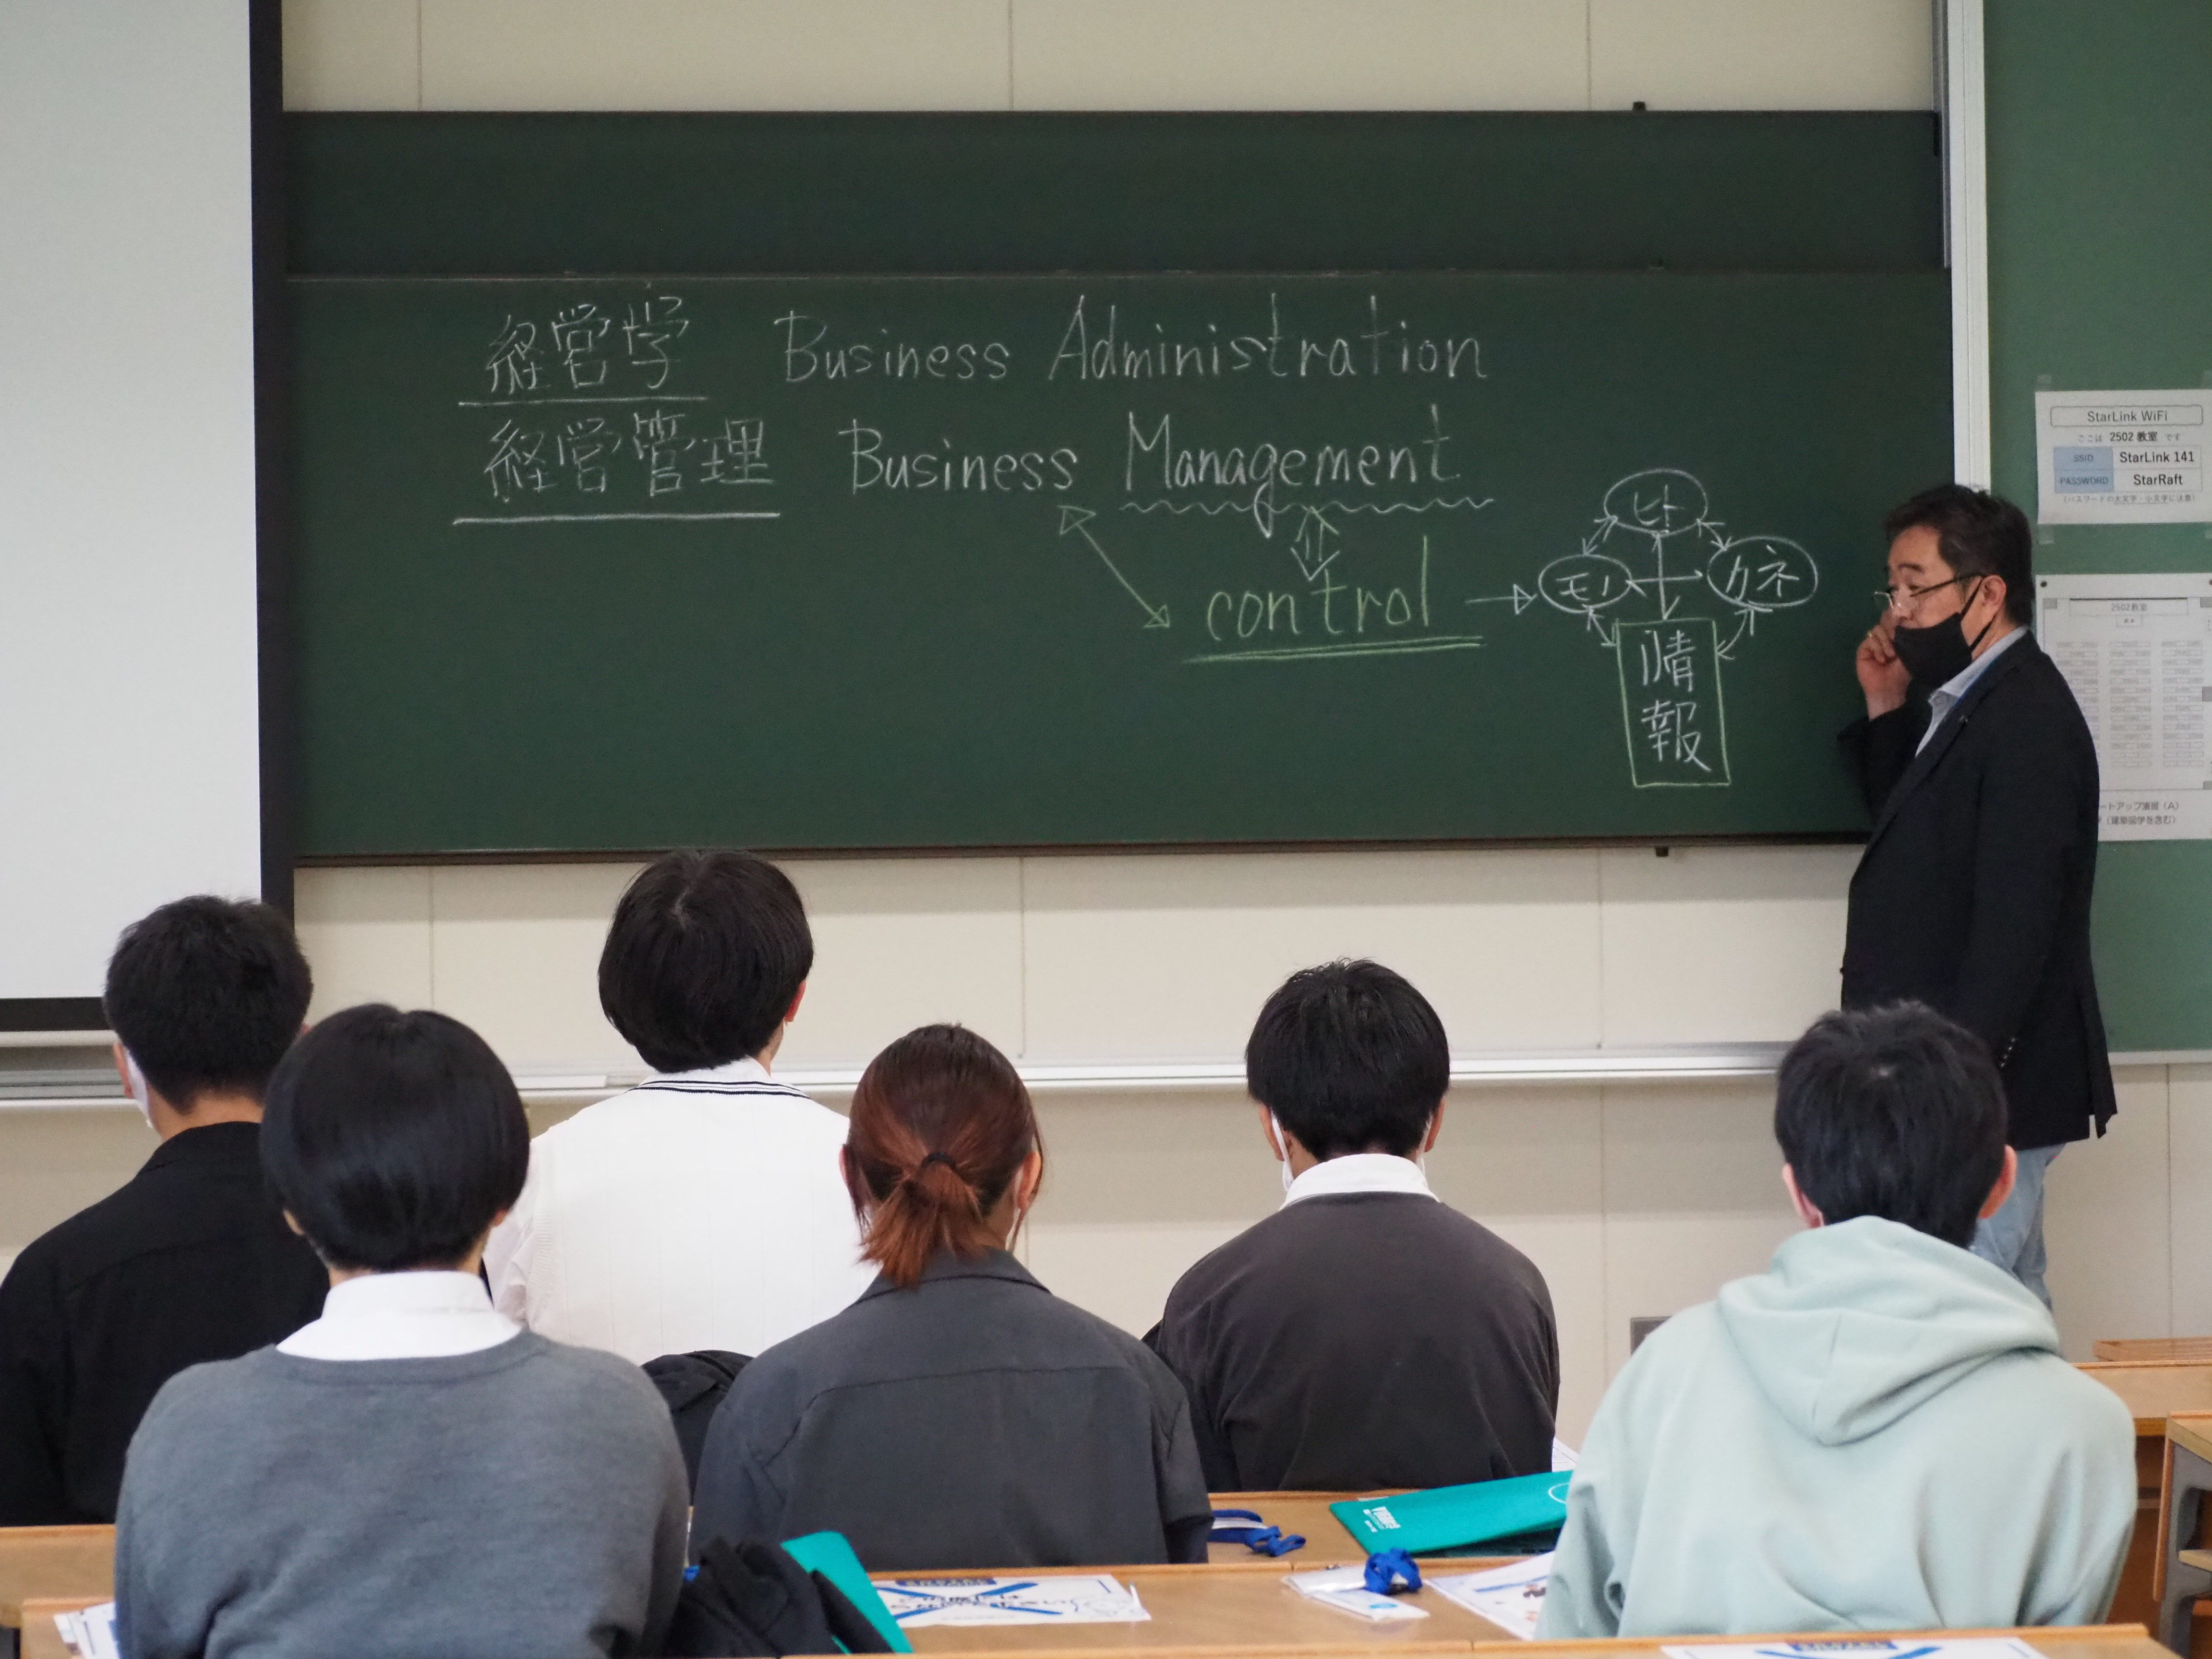 経営学 Business Administration
経営管理 Business Management
control
ヒト
モノ
カネ
情報
StarLink WiFi
ここは 2502 教室 です
SSID StarLink 141
PASSWORD StarRaft
(パスワードの大文字・小文字に注意)
2502教室
ートアップ演習(A)
(建築図学を含む)